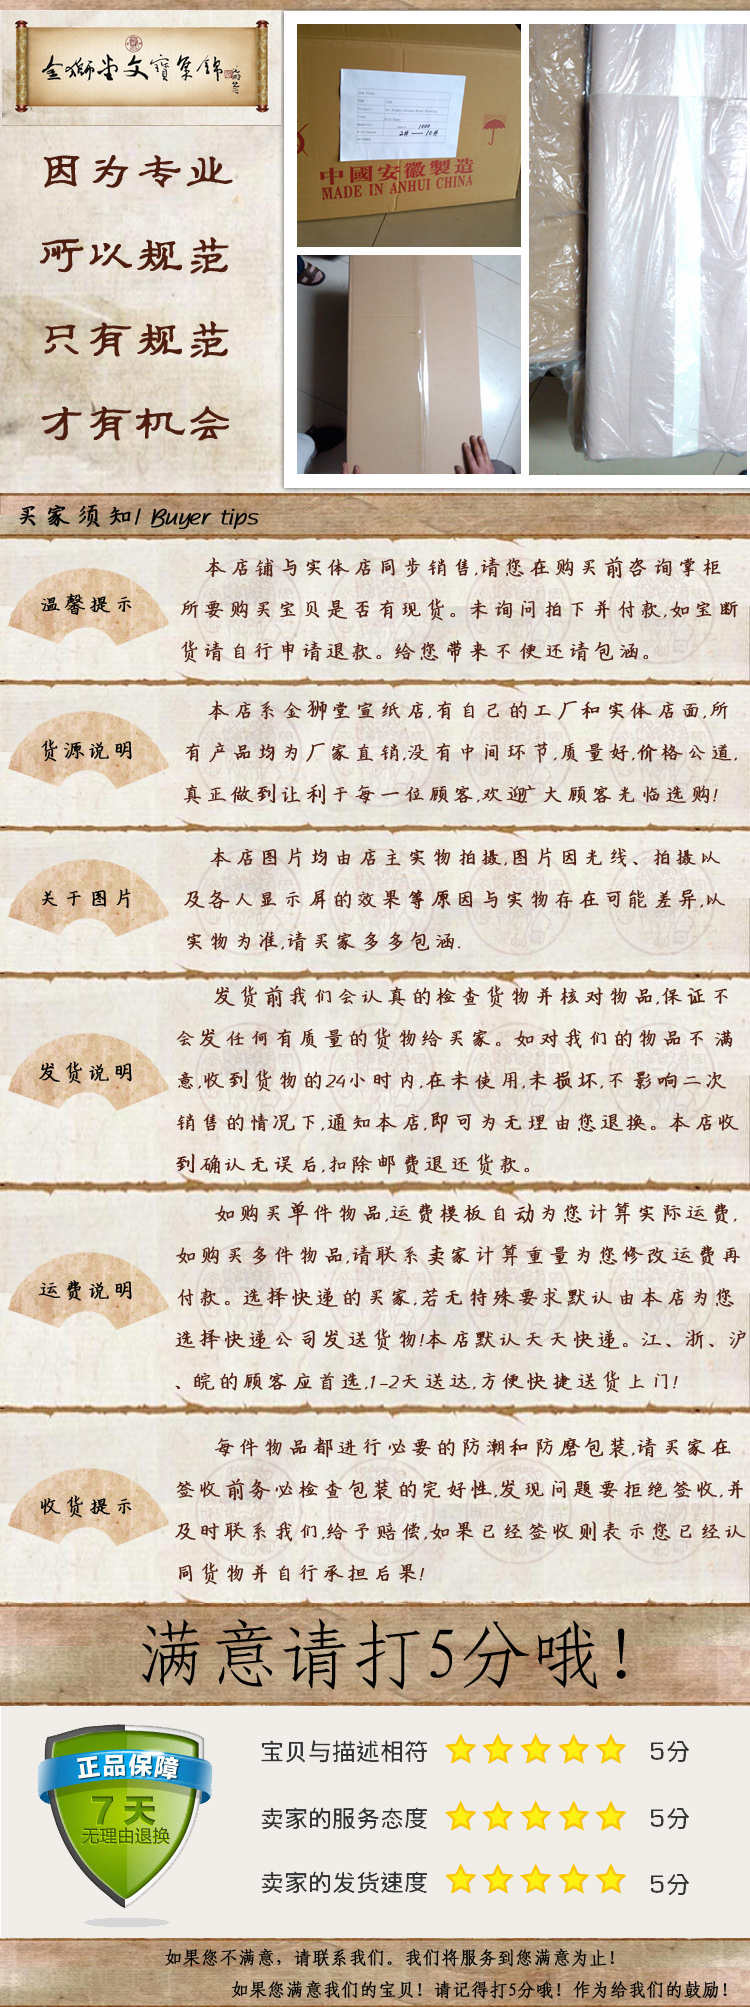 金狮堂文寳集锦
因为专业
所以规范
只有规范
才有机会
1000
2# — 10#
中國安徽製造
MADE IN ANHUI CHINA
买家须知/ Buyer tips
温馨提示
本店铺与实体店同步销售,请您在购买前咨询掌柜
所要购买宝贝是否有现货。未询问拍下并付款,如宝断
货请自行申请退款。给您带来不便还请包涵。
货源说明
本店系金狮堂宣纸店,有自己的工厂和实体店面,所
有产品均为厂家直销,没有中间环节,质量好,价格公道,
真正做到让利于每一位顾客,欢迎广大顾客光临选购!
关于图片
本店图片均由店主实物拍摄,图片因光线、拍摄以
及各人显示屏的效果等原因与实物存在可能差异,以
实物为准,请买家多多包涵.
发货说明
发货前我们会认真的检查货物并核对物品,保证不
会发任何有质量的货物给买家。如对我们的物品不满
意,收到货物的24小时内,在未使用,未损坏,不影响二次
销售的情况下,通知本店,即可为无理由您退换。本店收
到确认无误后,扣除邮费退还货款。
运费说明
如购买单件物品,运费模板自动为您计算实际运费,
如购买多件物品,请联系卖家计算重量为您修改运费再
付款。选择快递的买家,若无特殊要求默认由本店为您
选择快递公司发送货物!本店默认天天快递。江、浙、沪
、皖的顾客应首选,1-2天送达,方便快捷送货上门!
收货提示
每件物品都进行必要的防潮和防磨包装,请买家在
签收前务必检查包装的完好性,发现问题要拒绝签收,并
及时联系我们,给予赔偿,如果已经签收则表示您已经认
同货物并自行承担后果!
满意请打5分哦!
正品保障
7天
无理由退换
宝贝与描述相符 5分
卖家的服务态度 5分
卖家的发货速度 5分
如果您不满意，请联系我们。我们将服务到您满意为止！
如果您满意我们的宝贝！请记得打5分哦！作为给我们的鼓励！